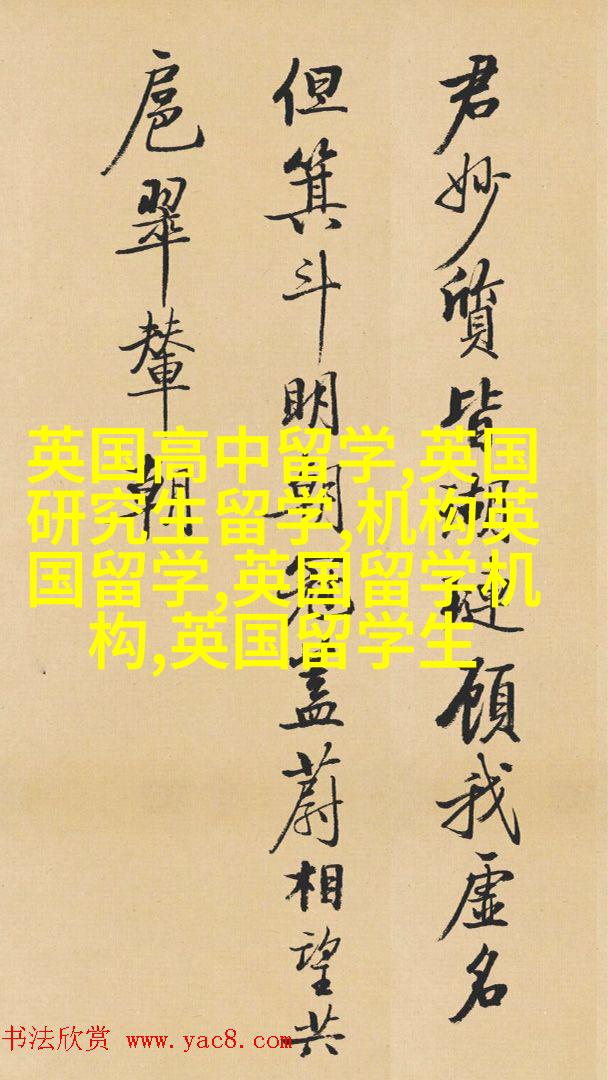 君妙質皆瑚璉顧我虚名
但箕斗明朝冠盖蔚相望共
扈翠輦朝
英国高中留学,英国
研究生留学,机构英
国留学,英国留学机
构,英国留学生
书法欣赏 www.yac8.com